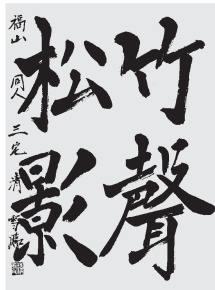 竹聲
松影
福山 同人 三宅 清雪